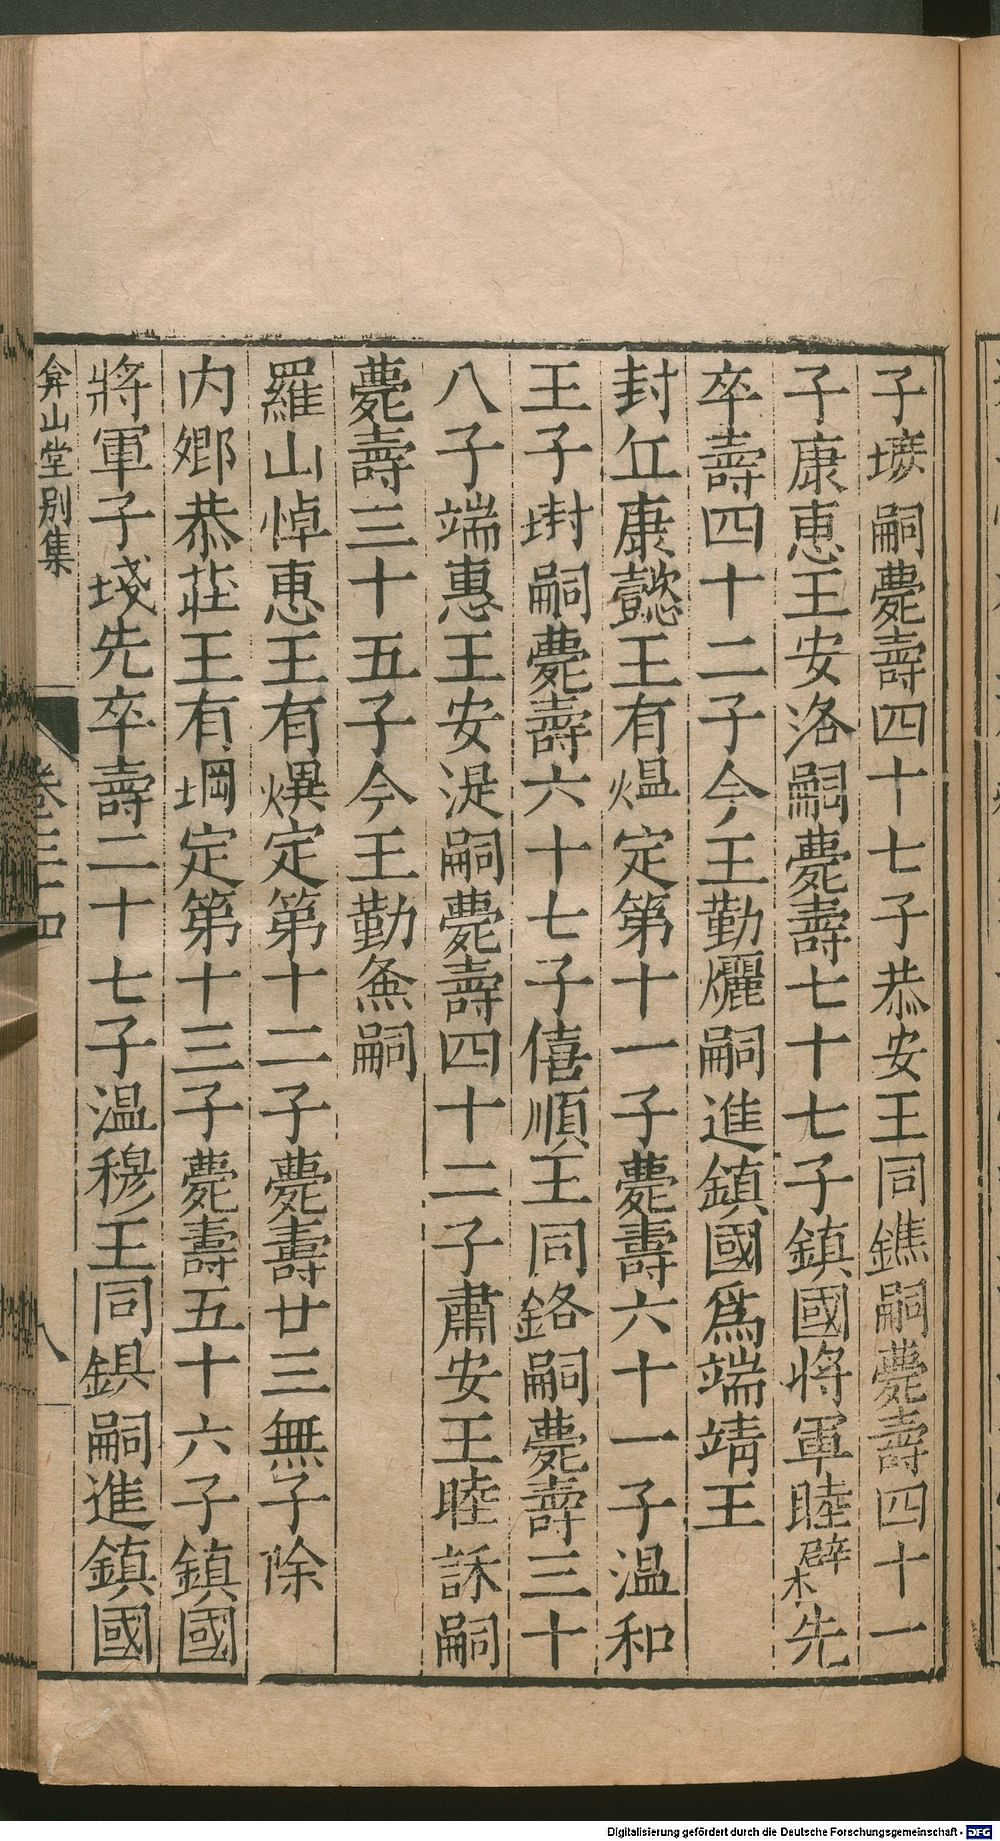 子㙺嗣薨壽四十七子恭安王同鐎嗣薨壽四十一
子康恵王安洛嗣薨壽七十七子鎮國将軍睦㰆先
卒壽四十二子今王勤爥嗣進鎮國爲端靖王
封丘康懿王有熅定第十一子薨壽六十一子温和
王子埘嗣薨壽六十七子僖順王同鉻嗣薨壽三十
八子端惠王安湜嗣薨壽四十二子肅安王睦䛾嗣
薨壽三十五子今王勤嗣
羅山悼恵王有熼定第十二子薨壽廿三無子除
内鄉恭莊王有堈定第十三子薨壽五十六子鎮國
將軍子㘋先卒壽二十七子温穆王同鋇嗣進鎮國
弇山堂别集
卷三十四
八
Digitalisierung gefördert durch die Deutsche Forschungsgemeinschaft - DFG